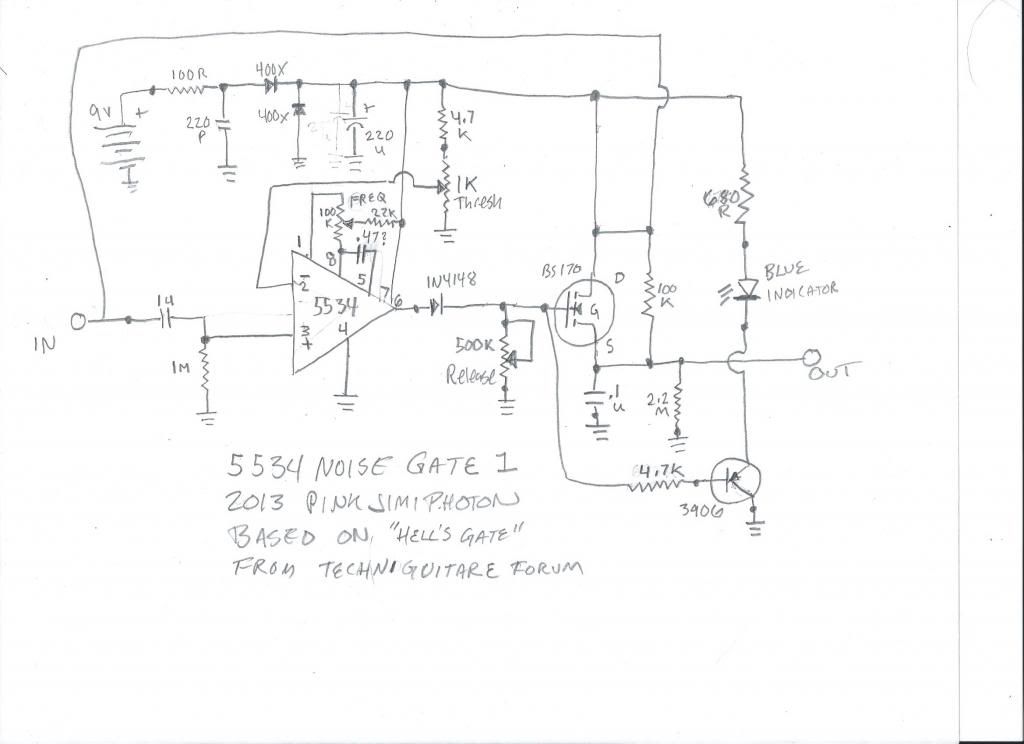 100R
400X
9V
+
220
P
400X
+
220
U
4.7
K
1K
Thresh
FREQ
100
K
22K
.47?
1
8
5
7
2
5534
6
3
+
4
1N4148
BS170
D
G
S
100
K
680
R
BLUE
INDICATOR
IN
1M
500K
Release
.1
U
2.2
M
OUT
4.7K
3906
5534 NOISE GATE 1
2013 PINK JIMI PHOTON
BASED ON "HELL'S GATE"
FROM TECHNIGUITARE FORUM